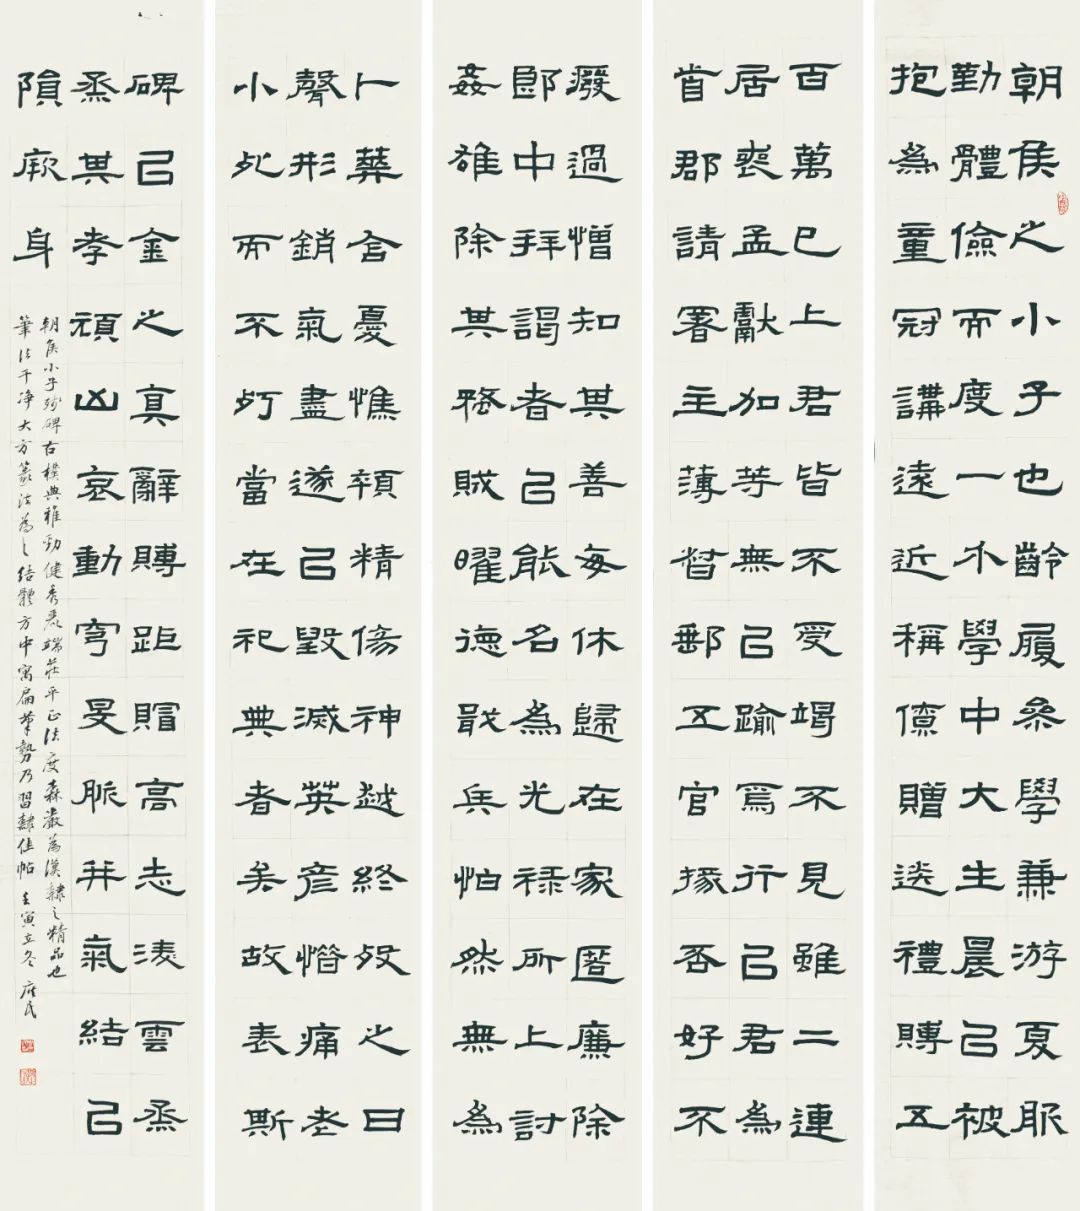 朝侯之小子也齡履參學兼游夏服
勤體儉而度一不學中大生晨己被
抱為童冠講遠近稱僚贈送禮賻五
百萬已上君皆不受竭不見雖二連
居喪孟獻加等無己踰焉行己君為
首郡請署主薄督郵五官掾否好不
廢過憎知其善每休歸在家匿廉除
郎中拜謁者己能名為光祿所上討
姦雄除其蝥賊曜德戢兵怕然無為
卜葬含憂憔顇精傷神越終歿之日
聲形銷氣盡遂己毀滅英彥惜痛老
小死而不朽當在祀典者矣故表斯
碑己金之真辭賻距贈高志淩雲烝
烝其孝頑凶哀動穹旻脈并氣結己
隕厥身
朝侯小子殘碑古樸典雅勁健秀麗端莊平正法度森嚴為漢隸之精品也
筆法干净大方篆法為之結體方中寓扁筆勢乃習隸佳帖 壬寅立冬 民